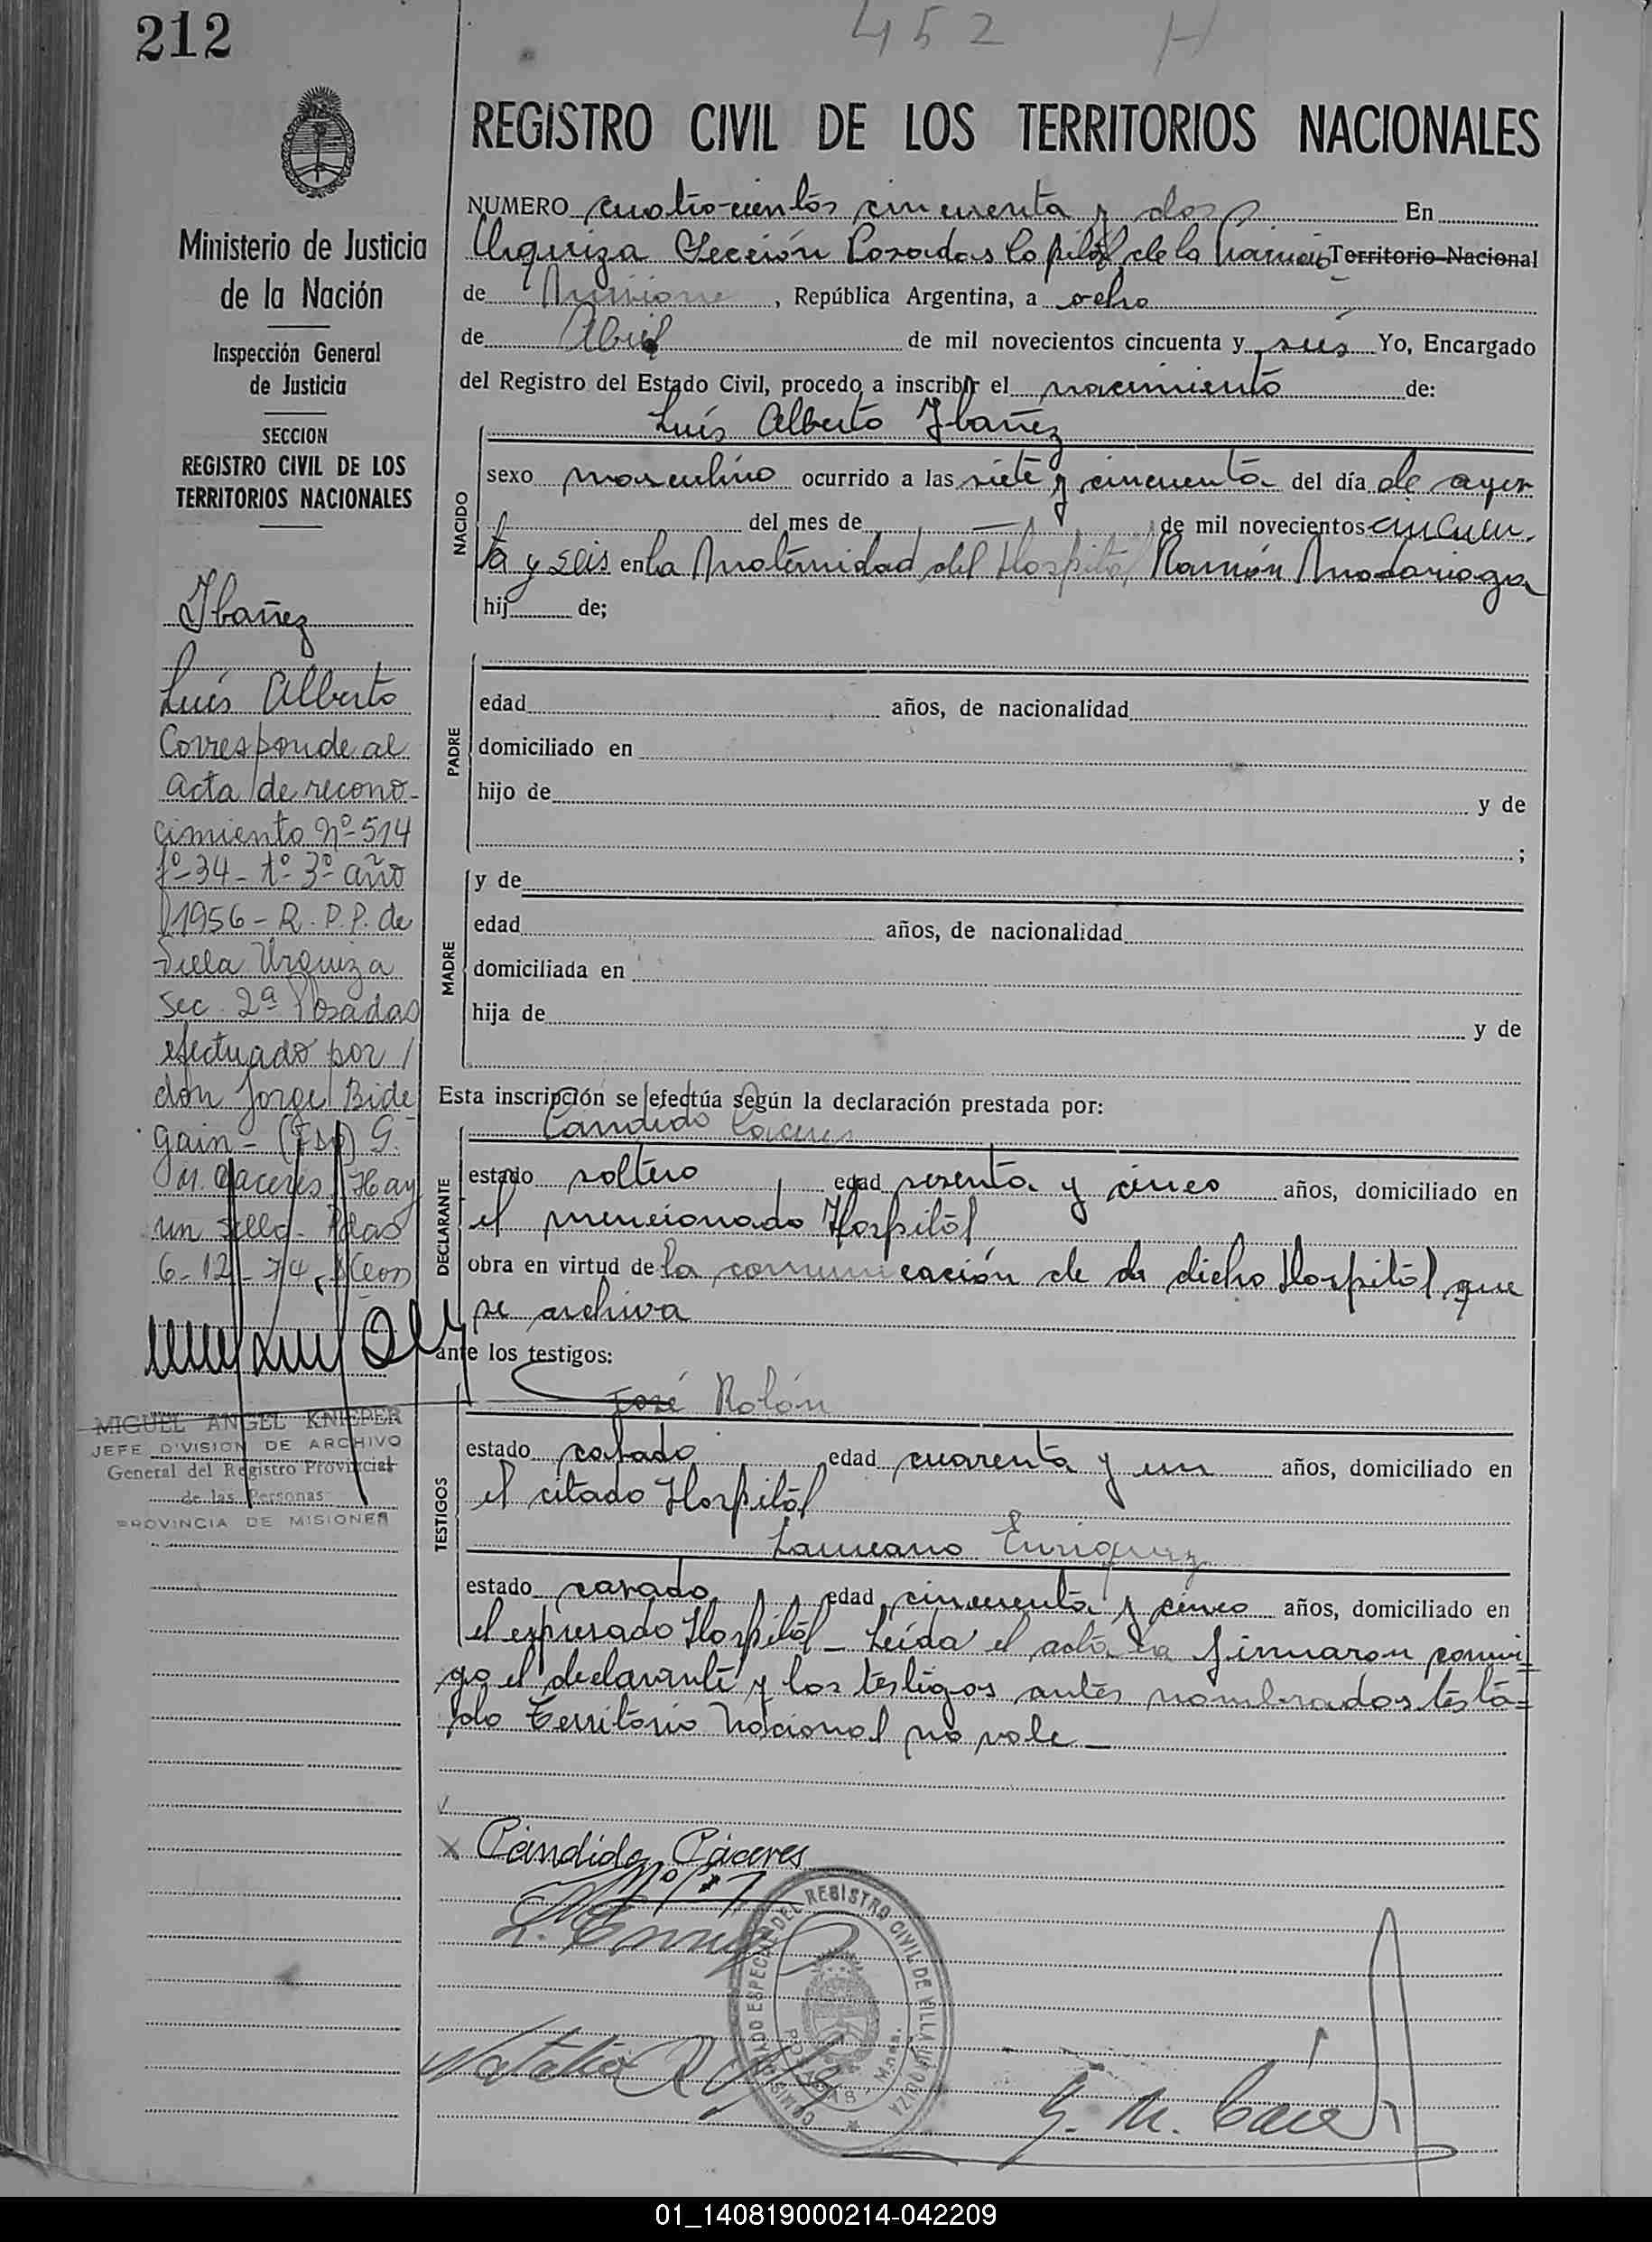 212
452 H
REGISTRO CIVIL DE LOS TERRITORIOS NACIONALES
Ministerio de Justicia
de la Nación
Inspección General
de Justicia
SECCION
REGISTRO CIVIL DE LOS
TERRITORIOS NACIONALES
Ibañez
Luis Alberto
Corresponde al
acta de recono-
cimiento Nº 514
fº-34-tº-3º año
1956-R.P.P. de
Villa Urquiza
Sec. 2ª Posadas
efectuado por
don Jorge Bide
gain-(Fdo) G.
M. Caceres. Hay
un sello. Pdas
6-12-74
MIGUEL ANGEL KNIEPER
JEFE DIVISION DE ARCHIVO
General del Registro Provincial
de las Personas
PROVINCIA DE MISIONES
NUMERO cuatrocientos cincuenta y dos En
Urquiza Sección Posadas Capital de la Provincia Territorio Nacional
de Misiones, República Argentina, a ocho
de Abril de mil novecientos cincuenta y seis Yo, Encargado
del Registro del Estado Civil, procedo a inscribir el nacimiento de:
Luis Alberto Ibañez
NACIDO
sexo masculino ocurrido a las siete y cincuenta del día de ayer
del mes de de mil novecientos cincuen-
ta y seis en la Maternidad del Hospital Ramón Madariaga
hij de;
PADRE
edad años, de nacionalidad
domiciliado en
hijo de y de
;
MADRE
y de
edad años, de nacionalidad
domiciliada en
hija de y de
Esta inscripción se efectúa según la declaración prestada por:
Candido Caceres
DECLARANTE
estado soltero edad sesenta y cinco años, domiciliado en
el mencionado Hospital
obra en virtud de la comunicación de dicho Hospital que
se archiva
ante los testigos:
José Rolón
TESTIGOS
estado casado edad cuarenta y un años, domiciliado en
el citado Hospital
Laureano Enriquez
estado casado edad cincuenta y cinco años, domiciliado en
el expresado Hospital - Leída el acta la firmaron conmi-
go el declarante y los testigos antes nombrados testa=
do Territorio Nacional no vale -
x Cándido Cáceres
COMISIONADO ESPECIAL DEL REGISTRO CIVIL DE VILLA URQUIZA
POSADAS Mnes.
G. M. Cace
01_140819000214-042209